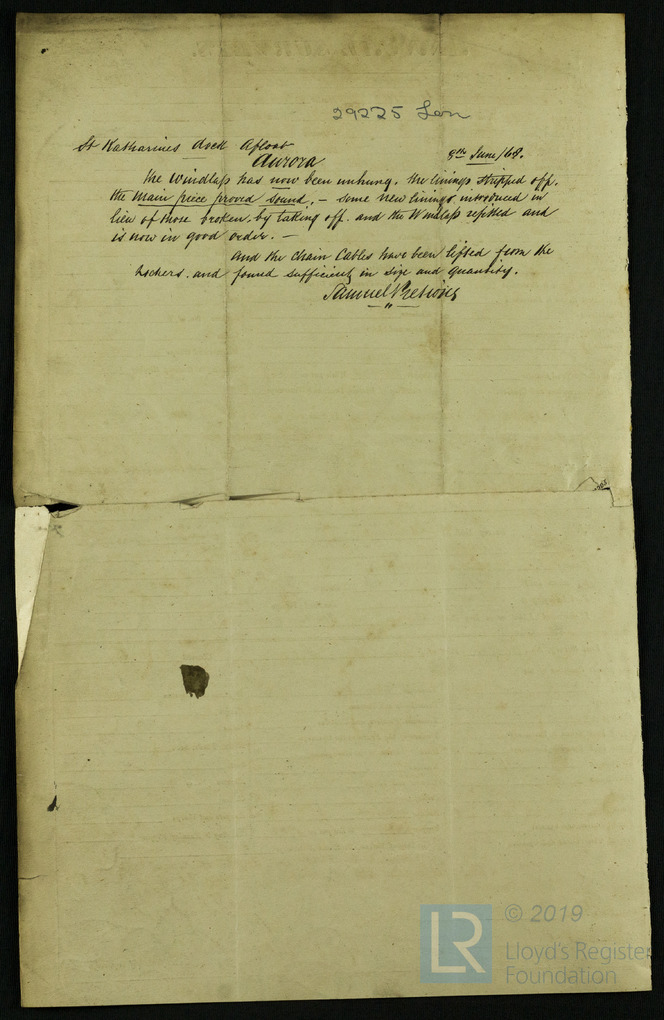 29225 Lon
St Katharines dock Afloat
Aurora 9th June/68.
the Windlass has now been unhung. the linings stripped off.
the main piece proved sound. – some new linings introduced in
lieu of those broken. by taking off. and the Windlass refitted and
is now in good order. –
And the Chain Cables have been lifted from the
lockers. and found sufficient in size and quantity.
Samuel
LR © 2019
Lloyd's Register
Foundation